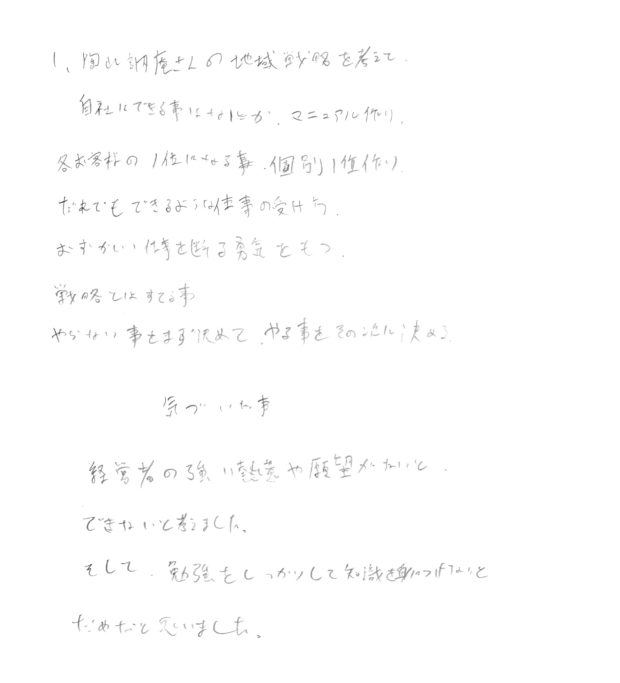 1、陶山訥庵さんの地域戦略を考えて.
自社にできる事はなにか、マニュアル作り.
各お客様の1位になる事.個別1位作り.
だれでもできるような仕事の受け方.
むずかしい仕事を断る勇気をもつ.
戦略とはすてる事
やらない事をまず決めて、やる事をその次に決める.
気づいた事
経営者の強い熱意や願望がないと.
できないと考えました。
そして、勉強をしっかりして知識を身につけないと
だめだと思いました。